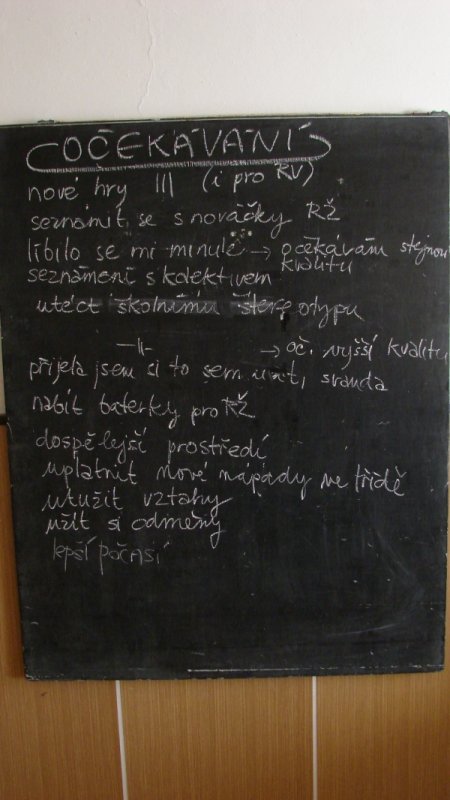 OČEKÁVÁNÍ
nové hry III (i pro RV)
seznámit se s nováčky RŽ
líbilo se mi minule → očekávám stejnou kvalitu
seznámení s kolektivem
utéct školnímu stereotypu
—||— → oč. vyšší kvalitu
přijela jsem si to sem užít, sranda
nabít baterky pro RŽ
dospělejší prostředí
uplatnit nové nápady ve třídě
utužit vztahy
užít si odměny
lepší počasí